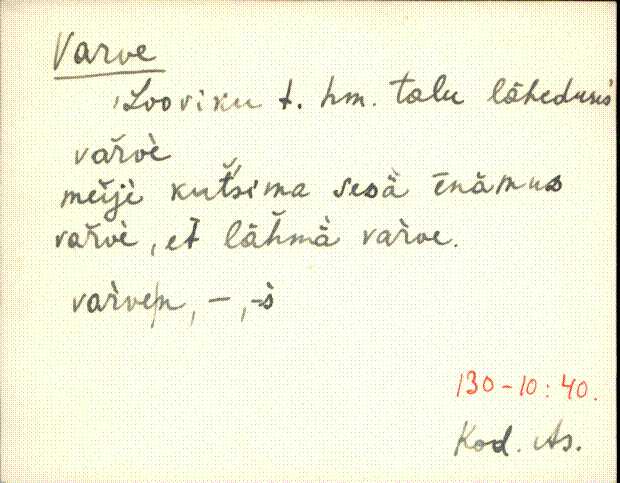 Varve
Looviku t. hm. talu lähedusis
varvè
meijè kuťsima sesä ēnämus
varvè, et lähmä varve.
varven, –, -s
130-10:40.
Kod. As.